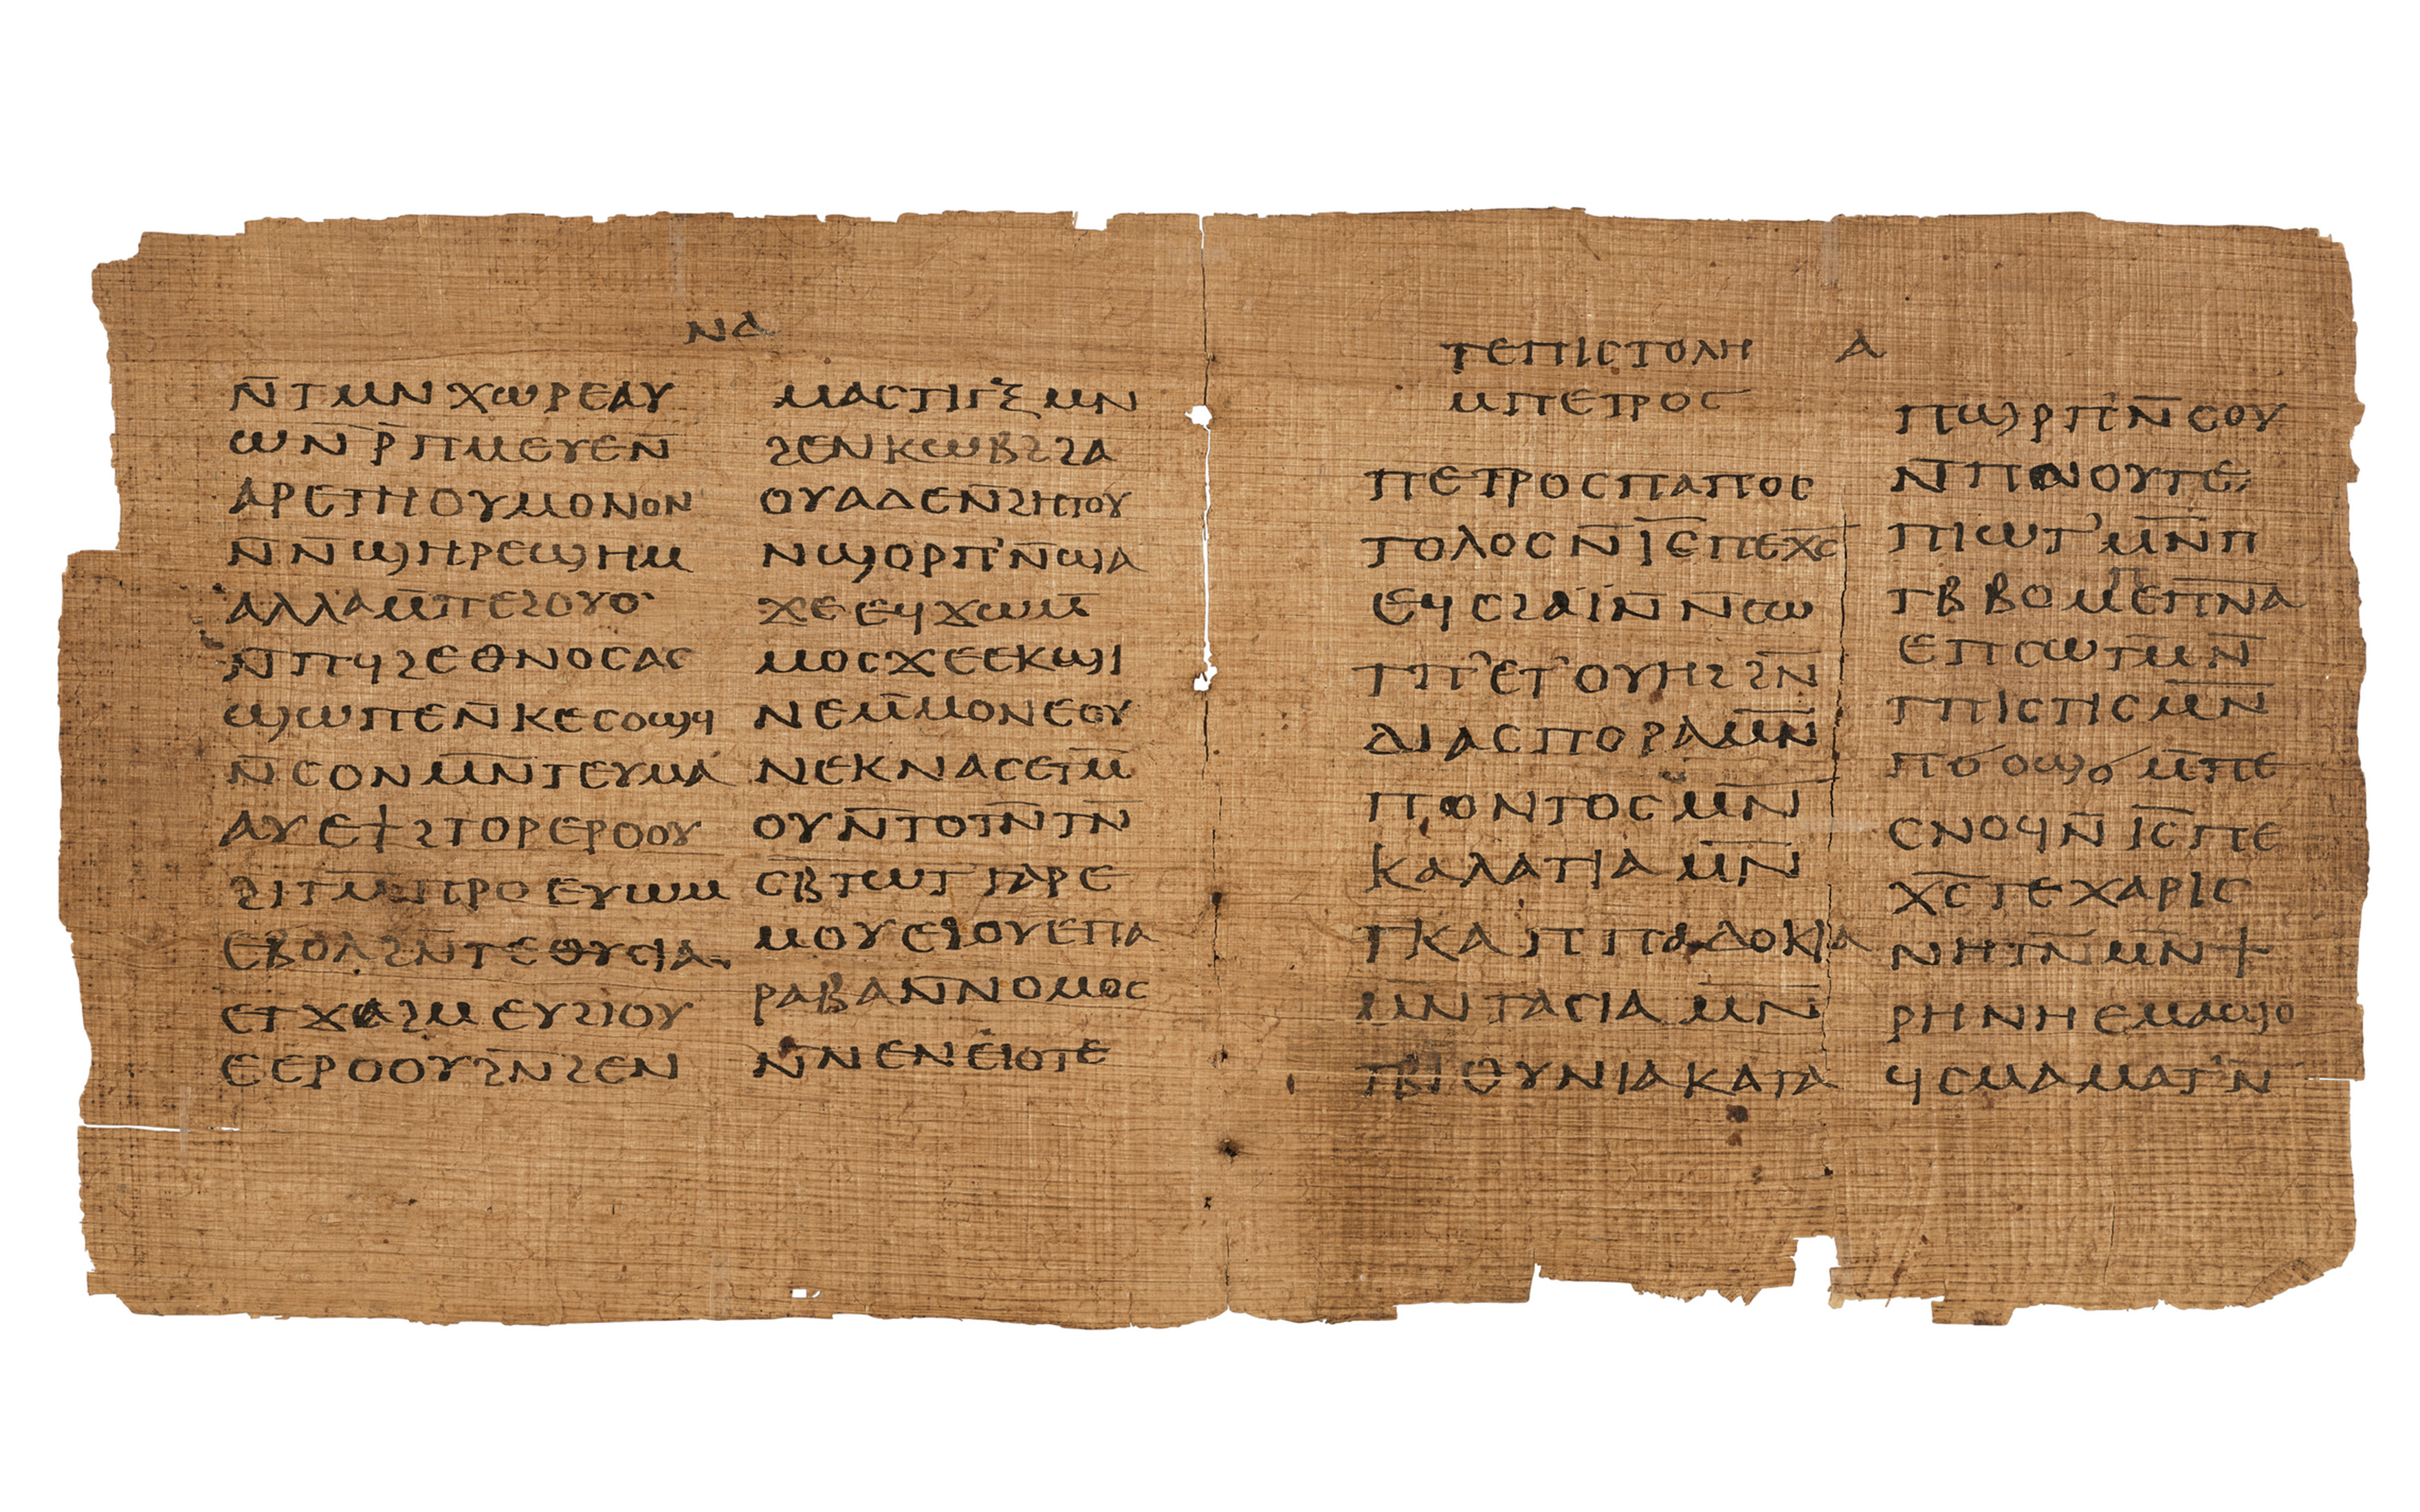 ⲛⲁ
ⲛ̄ⲧⲙⲛⲭⲱⲣⲉⲁⲩ
ⲱⲛ̄ⲣ̄ⲡⲙⲉⲩⲉⲛ̄
ⲁⲣⲉⲧⲏⲟⲩⲙⲟⲛⲟⲛ
ⲛ̄ⲛ̄ϣⲏⲣⲉϣⲏⲙ
ⲁⲗⲗⲁⲙ̄ⲡⲉϩⲟⲩⲟ
ⲛ̄ⲡϥϩⲉⲑⲛⲟⲥⲁⲥ
ϣⲱⲡⲉⲛ̄ⲕⲉⲥⲟϣϥ
ⲛ̄ⲥⲟⲛⲙ̄ⲛ̄ⲧⲉⲩⲙⲁ
ⲁⲩⲉϯϩⲧⲟⲣⲉⲣⲟⲟⲩ
ϩⲓⲧⲙ̄ⲡⲣⲟⲉⲩⲱⲙ
ⲉⲃⲟⲗϩⲛ̄ⲧⲉⲑⲩⲥⲓⲁ
ⲉⲧϫⲁϩⲙⲉⲩϩⲓⲟⲩ
ⲉⲉⲣⲟⲟⲩϩⲛ̄ϩⲉⲛ
ⲙⲁⲥⲧⲓⲅⲝⲙⲛ
ϩⲉⲛⲕⲱⲃϩϩⲁ
ⲟⲩⲁⲇⲉⲛ̄ϩⲏⲧⲟⲩ
ⲛϣⲟⲣⲡ'ⲛ̄ϣⲁ
ϫⲉⲉϥϫⲱⲙ̄
ⲙⲟⲥϫⲉⲉⲕϣⲓ
ⲛⲉⲙ̄ⲙⲟⲛⲉⲟⲩ
ⲛⲉⲕⲛⲁⲥⲉⲧⲙ̄
ⲟⲩⲛ̄ⲧⲟⲧⲛ̄ⲧⲛ̄
ⲥⲃ̄ⲧⲱⲧⲡⲁⲣⲉ
ⲙⲟⲩⲉϩⲟⲩⲉⲡⲁ
ⲣⲁⲃⲁⲛ̄ⲛⲟⲙⲟⲥ
ⲛ̄ⲛⲉⲛⲉⲓⲟⲧⲉ
ⲧⲉⲡⲓⲥⲧⲟⲗⲏ ⲁ
ⲙⲡⲉⲧⲣⲟⲥ
ⲡⲉⲧⲣⲟⲥⲡⲁⲡⲟⲥ
ⲧⲟⲗⲟⲥⲛ̄ⲓ̄ⲥ̄ⲡⲉⲭ̄ⲥ̄
ⲉϥⲥϩⲁⲓ̈ⲛ̄ⲛ̄ⲥⲱ
ⲧⲡ'ⲉⲧ'ⲟⲩⲏϩϩⲛ̄
ⲇⲓⲁⲥⲡⲟⲣⲁⲙ̄ⲛ̄
ⲡⲟⲛⲧⲟⲥⲙ̄ⲛ̄
ⲕⲁⲗⲁⲧⲓⲁⲙ̄ⲛ̄
ⲧⲕⲁⲡⲡⲁⲇⲟⲕⲓⲁ
ⲙ̄ⲛ̄ⲧⲁⲥⲓⲁⲙ̄ⲛ̄
ⲧⲃⲓⲑⲩⲛⲓⲁⲕⲁⲧⲁ
ⲡϣⲣⲡ'ⲛ̄ⲥⲟⲩ
ⲛ̄ⲡⲛⲟⲩⲧⲉ
ⲡⲓⲱⲧ'ⲙ̄ⲛ̄ⲡ
ⲧⲃⲃⲟⲙ̄ⲡⲉⲡ̄ⲛ̄ⲁ̄
ⲉⲡⲥⲱⲧⲙ̄ⲛ̄
ⲧⲡⲓⲥⲧⲓⲥⲙ̄ⲛ̄
ⲡϭⲟϣϭⲙ̄ⲡⲉ
ⲥⲛⲟϥⲛ̄ⲓ̄ⲥ̄ⲡⲉ
ⲭ̄ⲥ̄ⲧⲉⲭⲁⲣⲓⲥ
ⲛⲏⲧⲛ̄ⲙ̄ⲛ̄ϯ
ⲣⲏⲛⲏⲉⲙⲁϣⲟ
ϥⲥⲙⲁⲙⲁⲧ'ⲛ̄